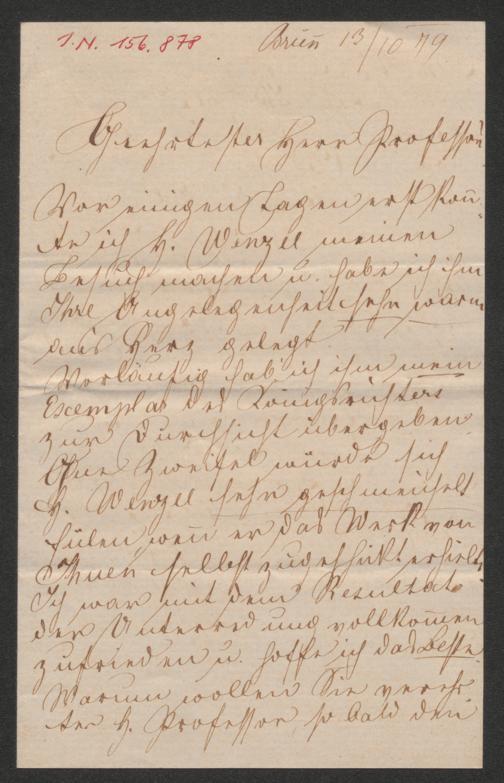 I.N. 156.878
Brün 13/10 79
Geehrtester Herr Professor
Vor einigen Tagen erst kon̄-
te ich H. Wenzel meinen
Besuch machen u. habe ich ihm
Ihre Angelegenheit sehr warm
ans Herz gelegt.
Vorläufig hab ich ihm mein
Exemplar des Königsrichters
zur Durchsicht übergeben.
Ohne Zweifel würde sich
H. Wenzel sehr geschmeichelt
fülen, wen̄ er das Werk von
Ihnen selbst zugeschickt erhielt.
Ich war mit dem Resultate
der Unterredung vollkom̄en
zufrieden u. hoffe ich das Beste.
Warum wollen Sie verehr
ter H. Professor, so bald den